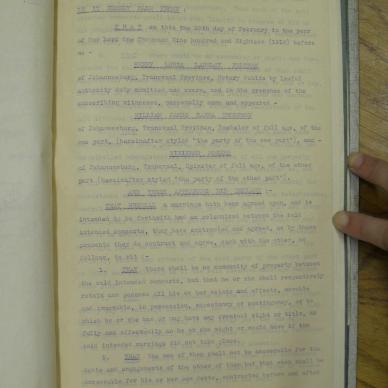 BE IT HEREBY MADE KNOWN :
THAT on this the 20th day of February in the year
of Our Lord One Thousand Nine Hundred and Eighteen (1918) before
me -
of Johannesburg, Transvaal Province, Notary Public by lawful
authority duly admitted and sworn, and in the presence of the
subscribing witnesses, personally came and appeared -
WILLIAM JAMES
of Johannesburg, Transvaal Province, Bachelor of full age, of the
one part, (hereinafter styled "the party of the one part"), and -
of Johannesburg, Transvaal, Spinster of full age, of the other
part (hereinafter styled "the party of the other part").
AND THESE APPEARERS DID DECLARE :-
THAT WHEREAS a marriage hath been agreed upon, and is
intended to be forthwith had and solemnized between the said
intended consorts, they have contracted and agreed, as by these
presents they do contract and agree, each with the other, as
follows, to wit :-
1. THAT there shall be no community of property between
the said intended consorts, but that he or she shall respectively
retain and possess all his or her estate and effects, movable
and immovable, in possession, expectancy or contingency, or to
which he or she has or may have any eventual right or title, as
fully and effectually as he or she might or would have if the
said intended marriage did not take place.
2. THAT the one of them shall not be answerable for the
debts and engagements of the other of them but that each shall be
answerable for his or her own debts, contracted before and after